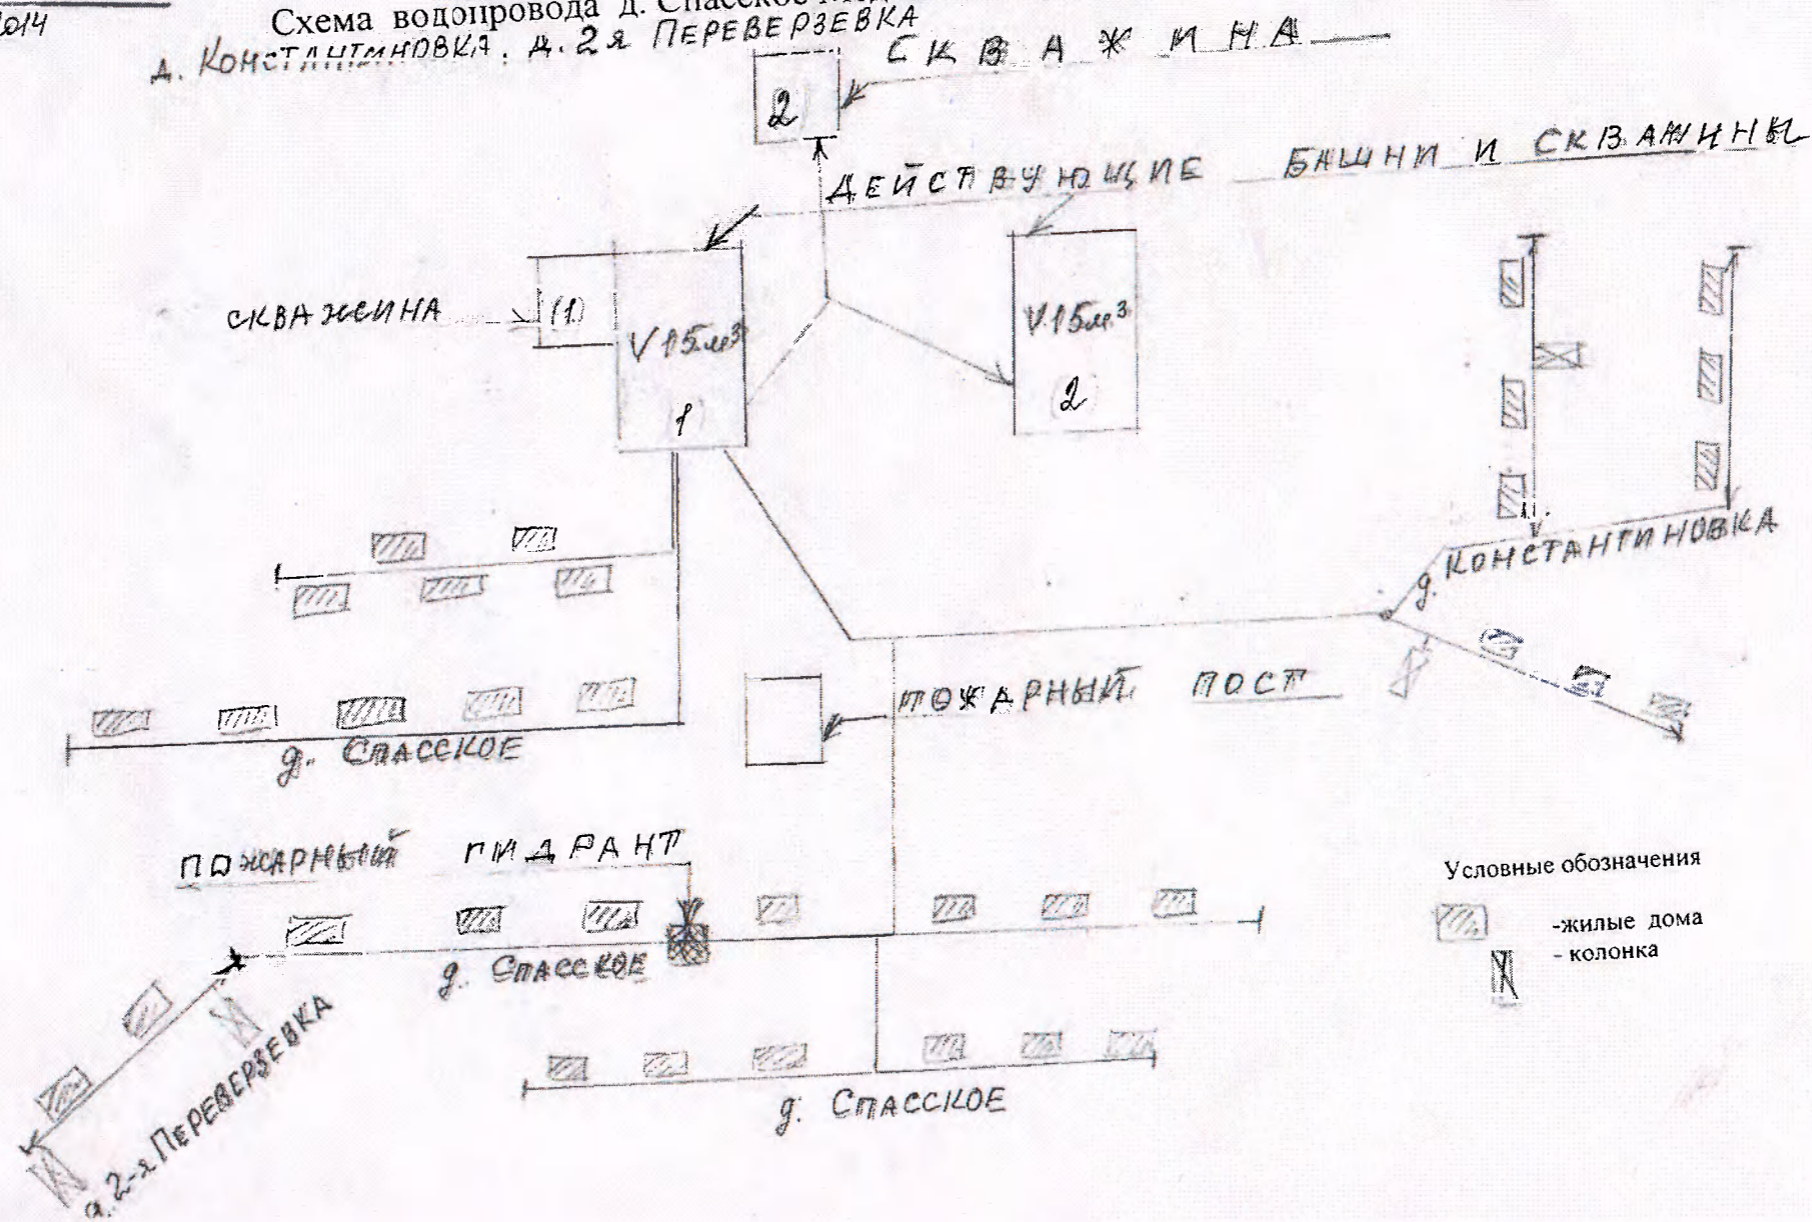 2014
Схема водопровода д. Спасское
д. КОНСТАНТИНОВКА, д. 2я ПЕРЕВЕРЗЕВКА
СКВАЖИНА
2
ДЕЙСТВУЮЩИЕ БАШНИ И СКВАЖИНЫ
СКВАЖИНА
(1)
V 15м³
(1)
V 15м³
(2)
д. КОНСТАНТИНОВКА
ПОЖАРНЫЙ ПОСТ
д. СПАССКОЕ
ПОЖАРНЫЙ ГИДРАНТ
д. СПАССКОЕ
д. 2-я ПЕРЕВЕРЗЕВКА
д. СПАССКОЕ
Условные обозначения
-жилые дома
- колонка